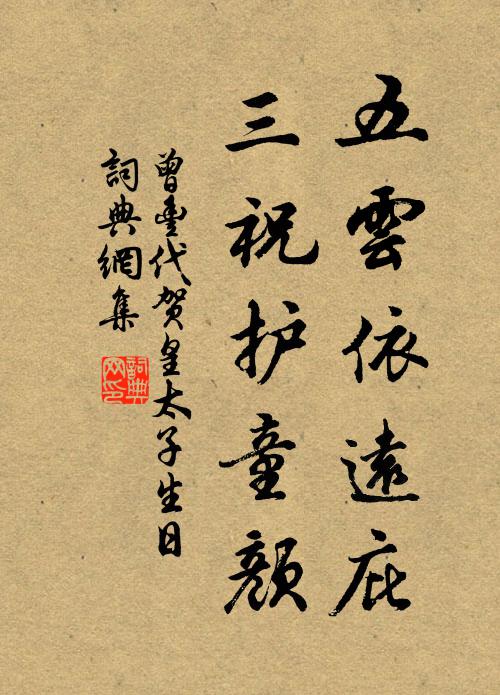 五雲依遠庇
三祝护童顔
曾豐代贺皇太子生日
詞典網集
詞典
网印